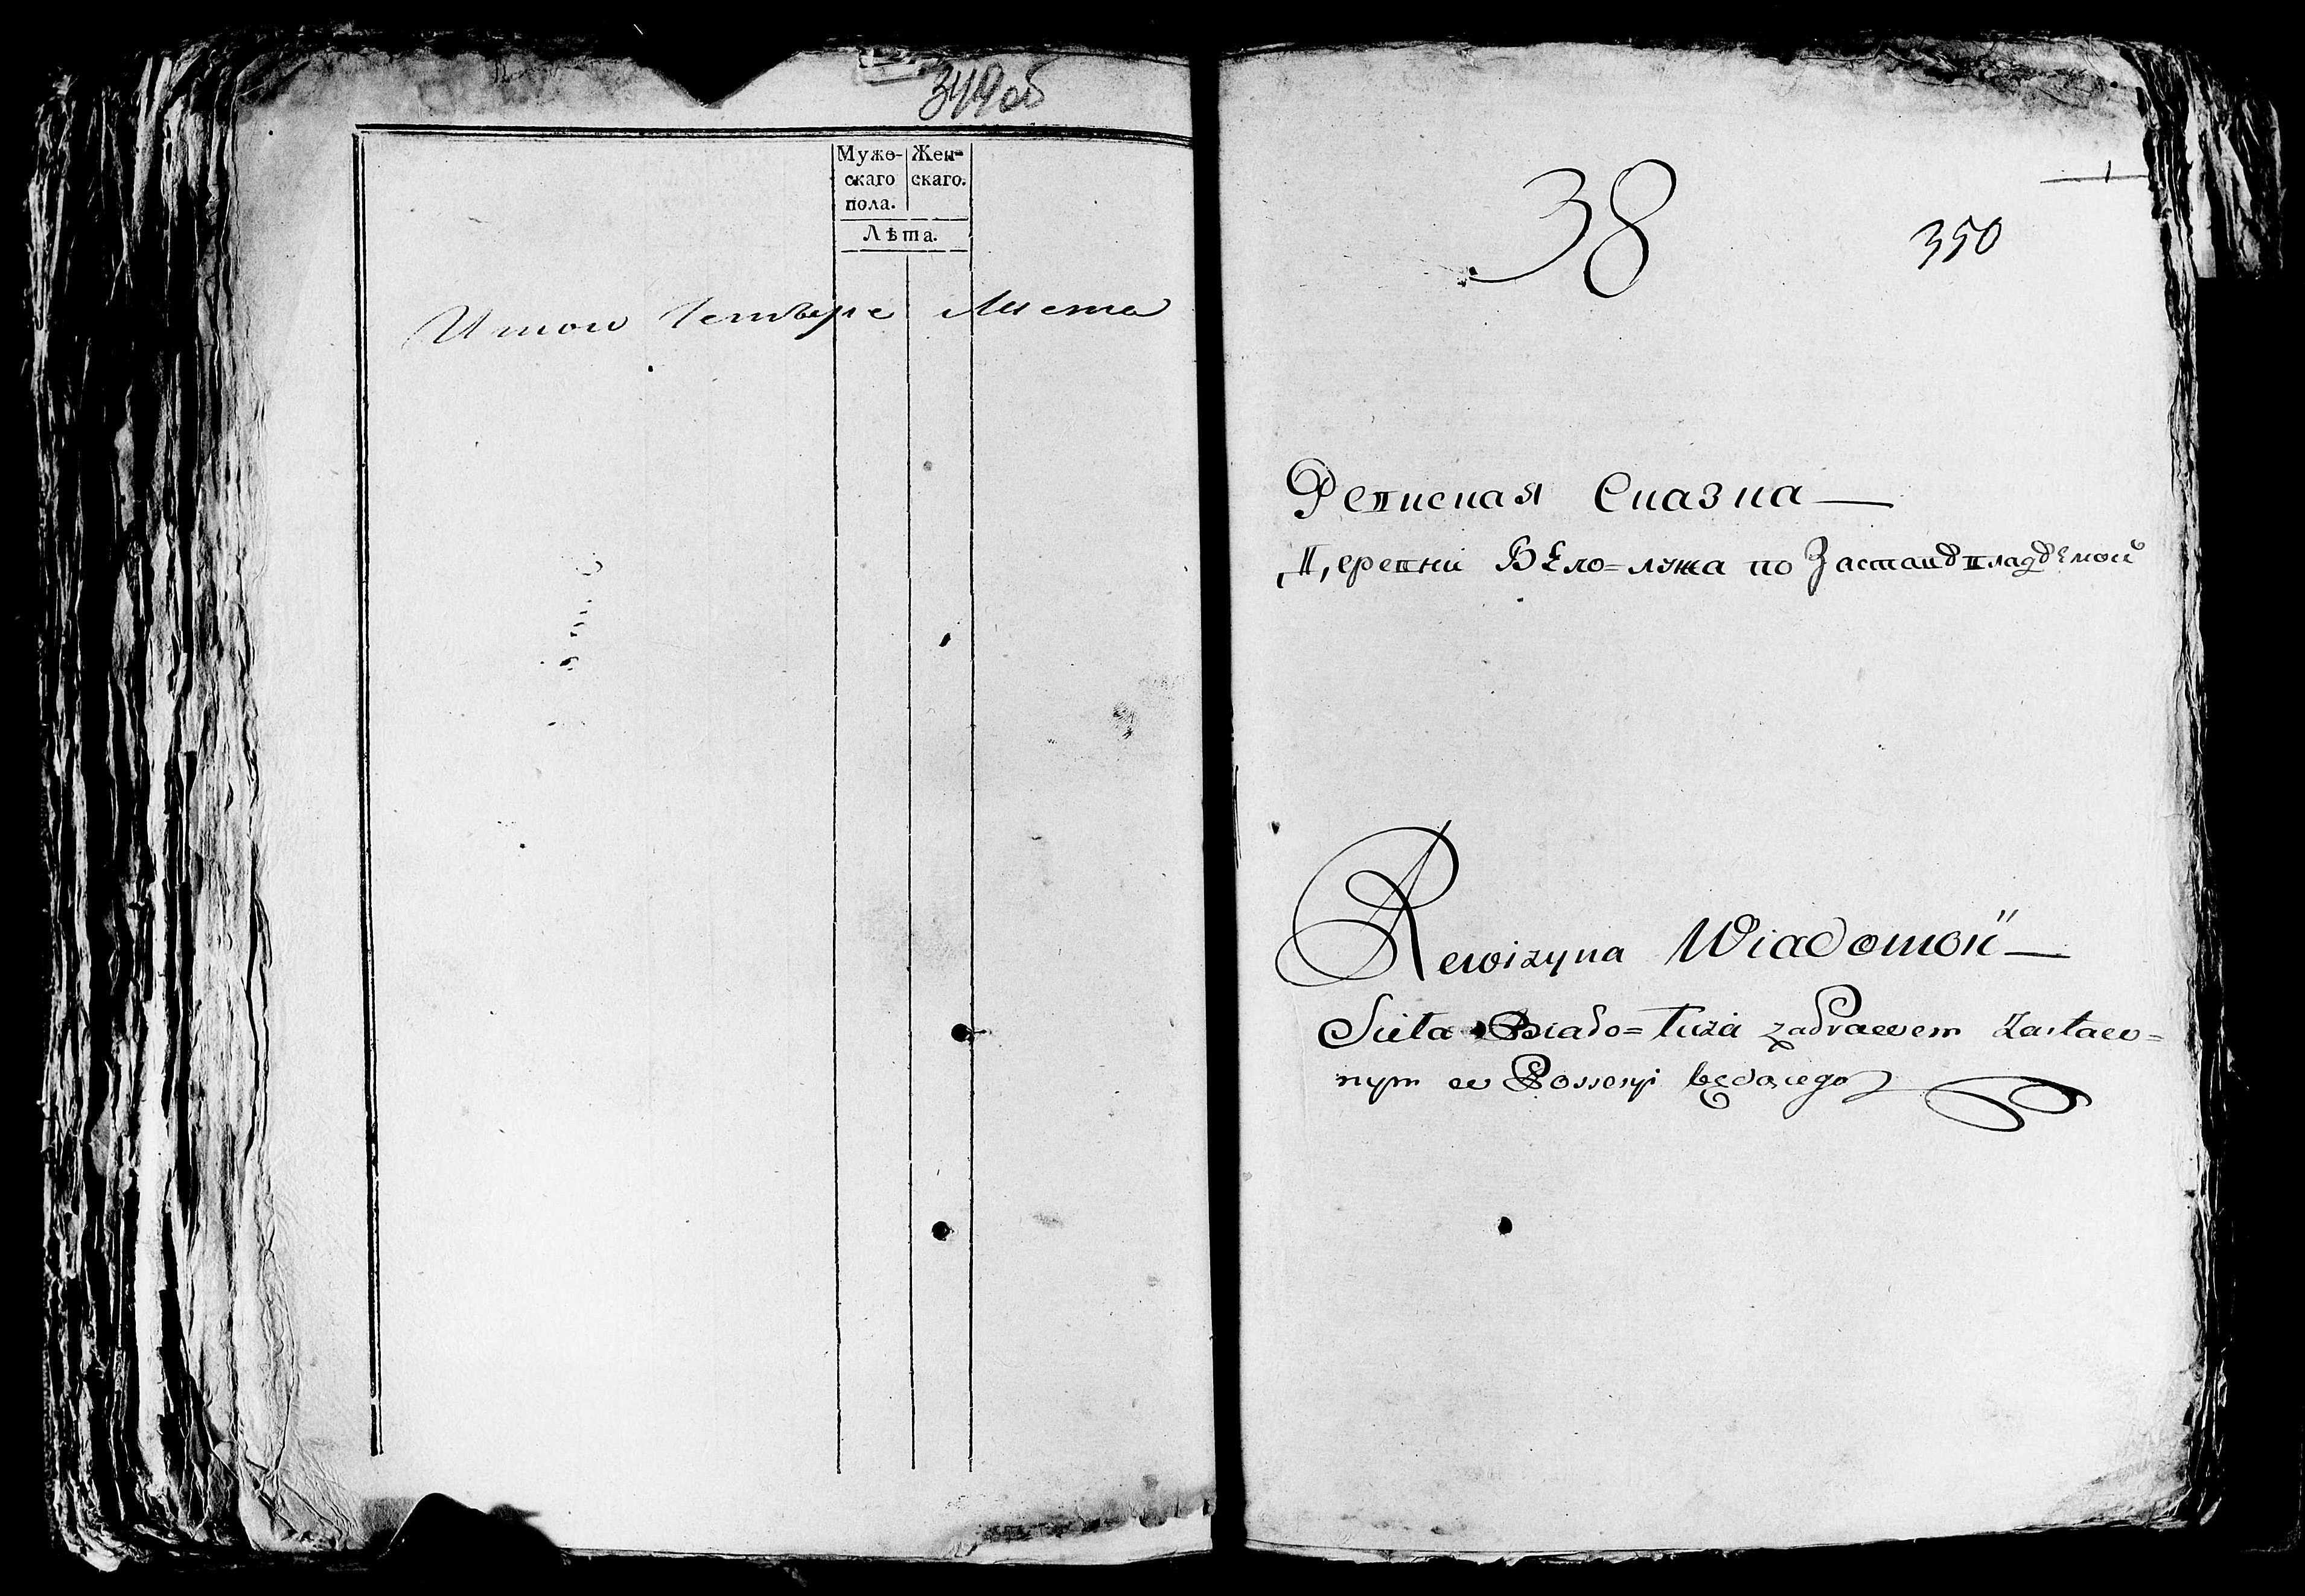 349об
Муже- Жен-
скаго скаго.
пола.
Лѣта.
Итого Четыре Листа
38
350
Ревиская Сказка
Деревни Бѣло=лужа по Заставѣ владѣемой
Rewizyna Wiadomość
Sieła Biało=Łuża za Prawem Zastaw=
nym w Possesyi będącego